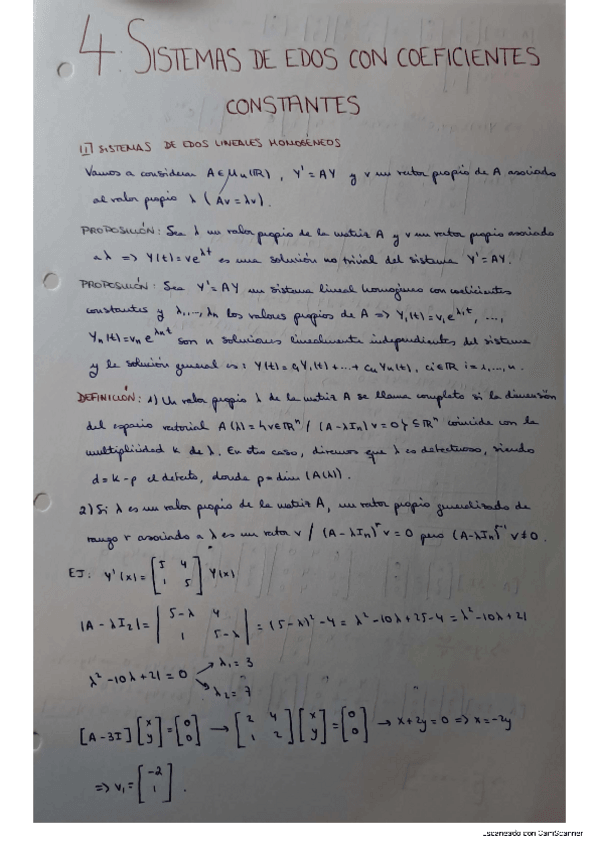 4. SISTEMAS DE EDOS CON COEFICIENTES
CONSTANTES
1) SISTEMAS DE EDOS LINEALES HOMOGÉNEOS
Vamos a considerar A∈Mn(ℝ), Y'=AY y v un vector propio de A asociado
al valor propio λ (Av=λv).
PROPOSICIÓN: Sea λ un valor propio de la matriz A y v un vector propio asociado
a λ => Y(t)=ve^λt es una solución no trivial del sistema Y'=AY.
PROPOSICIÓN: Sea Y'=AY un sistema lineal homogéneo con coeficientes
constantes y λ1,...,λn los valores propios de A => Y1(t)=v1e^λ1t, ...,
Yn(t)=vn e^λnt son n soluciones linealmente independientes del sistema
y la solución general es: Y(t)=c1Y1(t)+...+cnYn(t), ci∈ℝ i=1,...,n.
DEFINICIÓN: 1) Un valor propio λ de la matriz A se llama completo si la dimensión
del espacio vectorial A(λ)={v∈ℝ^n / (A-λIn)v=0} ⊆ ℝ^n coincide con la
multiplicidad k de λ. En otro caso, diremos que λ es defectuoso, siendo
d=k-p el defecto, donde p=dim(A(λ)).
2) Si λ es un valor propio de la matriz A, un vector propio generalizado de
rango r asociado a λ es un vector v / (A-λIn)^r v=0 pero (A-λIn)^r-1 v≠0.
EJ: Y'(x)=[5 4; 1 5] Y(x)
|A-λI2|=|5-λ 4; 1 5-λ|=(5-λ)²-4=λ²-10λ+25-4=λ²-10λ+21
λ²-10λ+21=0 → λ1=3 → λ2=7
[A-3I][x; y]=[0; 0] → [2 4; 1 2][x; y]=[0; 0] → x+2y=0 => x=-2y
=> v1=[-2; 1].
Escaneado con CamScanner